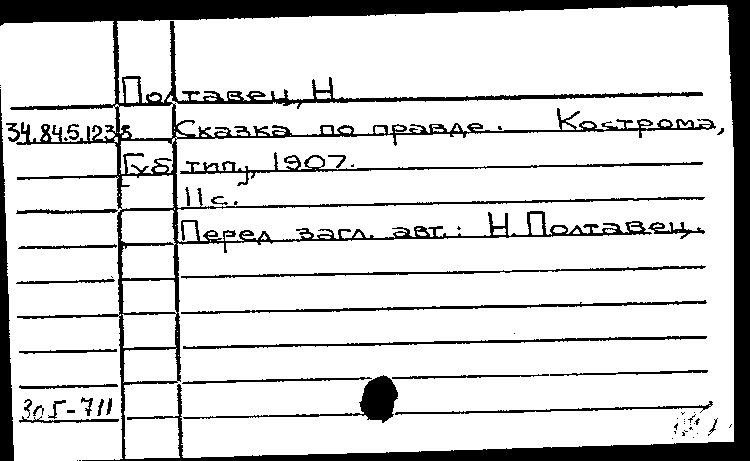 Полтавец, Н.
34.84.5.1238 Сказка по правде. Кострома,
Губ. тип., 1907.
11 с.
Перед загл. авт.: Н. Полтавец.
305-711